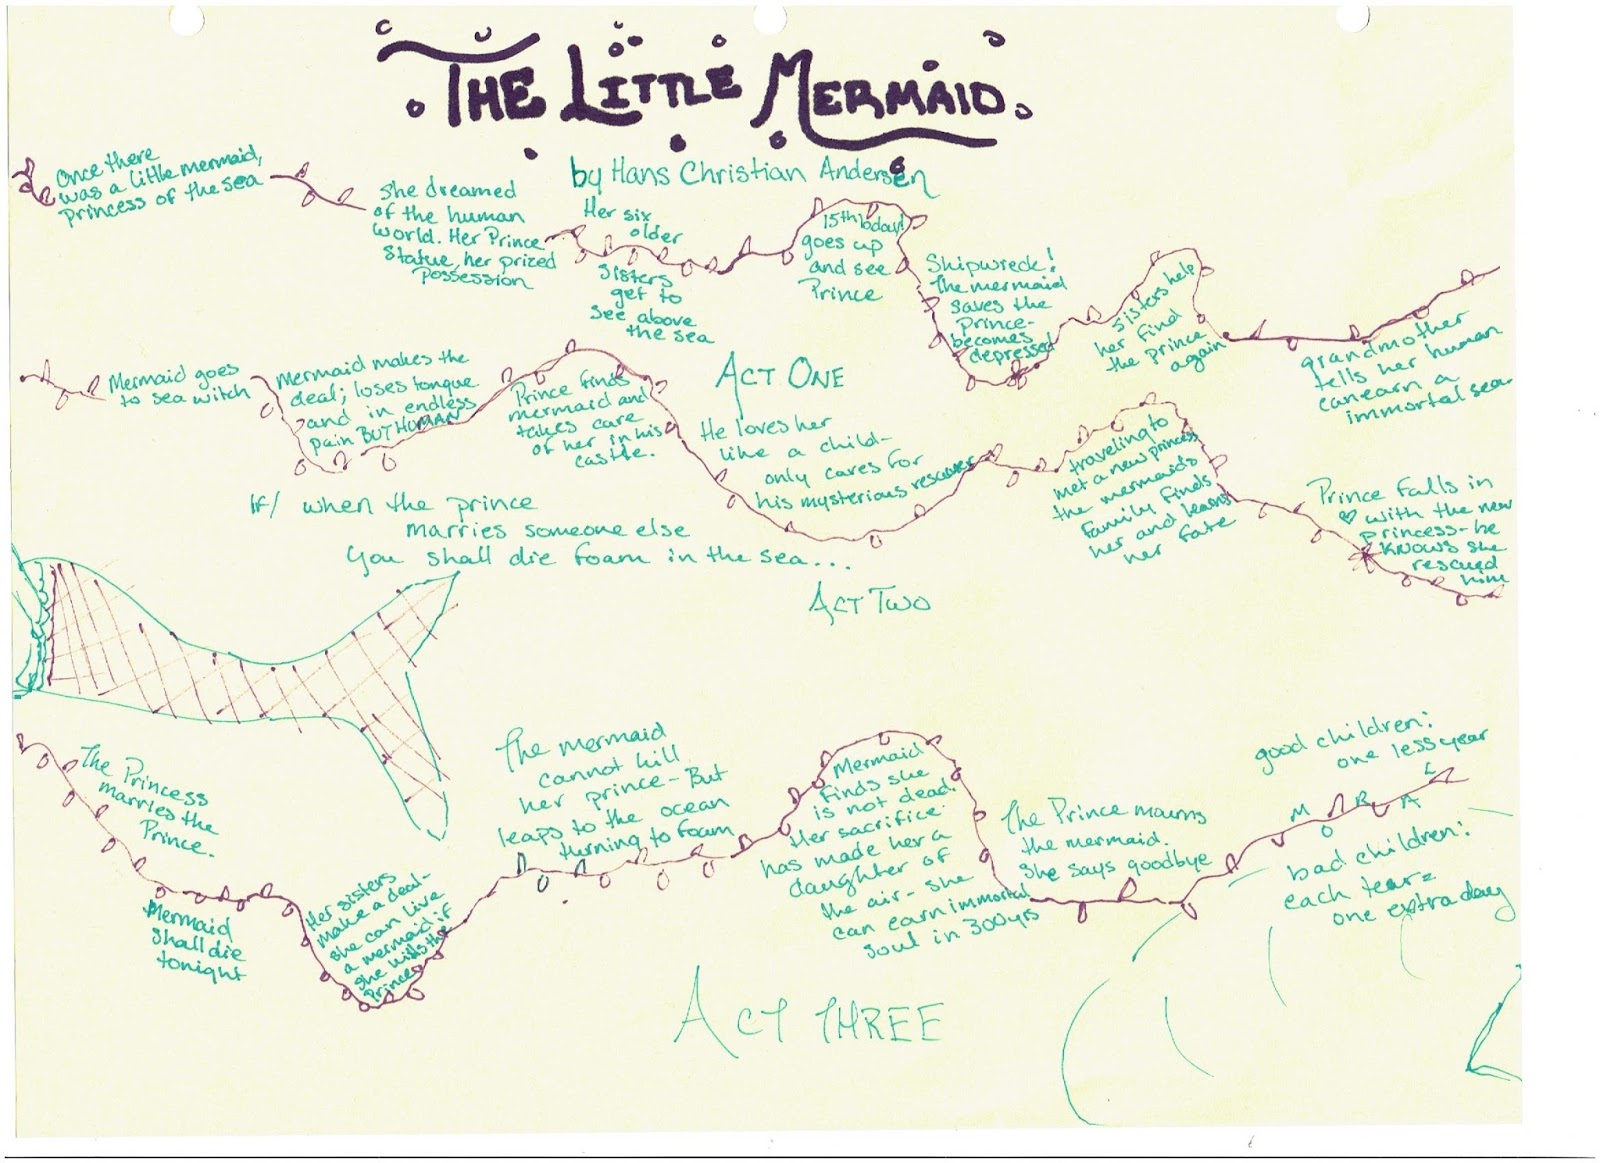 THE LITTLE MERMAID
by Hans Christian Andersen
Once there
was a little mermaid,
princess of the sea
She dreamed
of the human
world. Her Prince
Statue, her prized
Possession
Her six
older
sisters
get to
see above
the sea
15th bday!
goes up
and see
Prince
Shipwreck!
The mermaid
saves the
Prince-
becomes
depressed
sisters help
her find
the prince
again
grandmother
tells her human
can earn a
immortal
ACT ONE
Mermaid goes
to sea witch
Mermaid makes the
deal; loses tongue
and in endless
pain BUT HUMAN
Prince finds
mermaid and
takes care
of her in his
castle.
He loves her
like a child-
only cares for
his mysterious rescuer
traveling to
met a new princess
the mermaids
family finds
her and learns
her fate
Prince falls in
♥ with the new
princess-he
KNOWS she
rescued
him
If/ when the prince
marries someone else
you shall die foam in the sea...
ACT TWO
The Princess
marries the
Prince.
Mermaid
shall die
tonight
Her sisters
make a deal-
she can live
a mermaid if
she kills the
Prince
The mermaid
cannot kill
her prince-But
leaps to the ocean
turning to foam
Mermaid
finds she
is not dead.
Her sacrifice
has made her a
daughter of
the air- she
can earn immortal
soul in 300yrs
The Prince mourns
the mermaid.
She says goodbye
good children:
one less year
MORAL
bad children:
each tear=
one extra day
ACT THREE